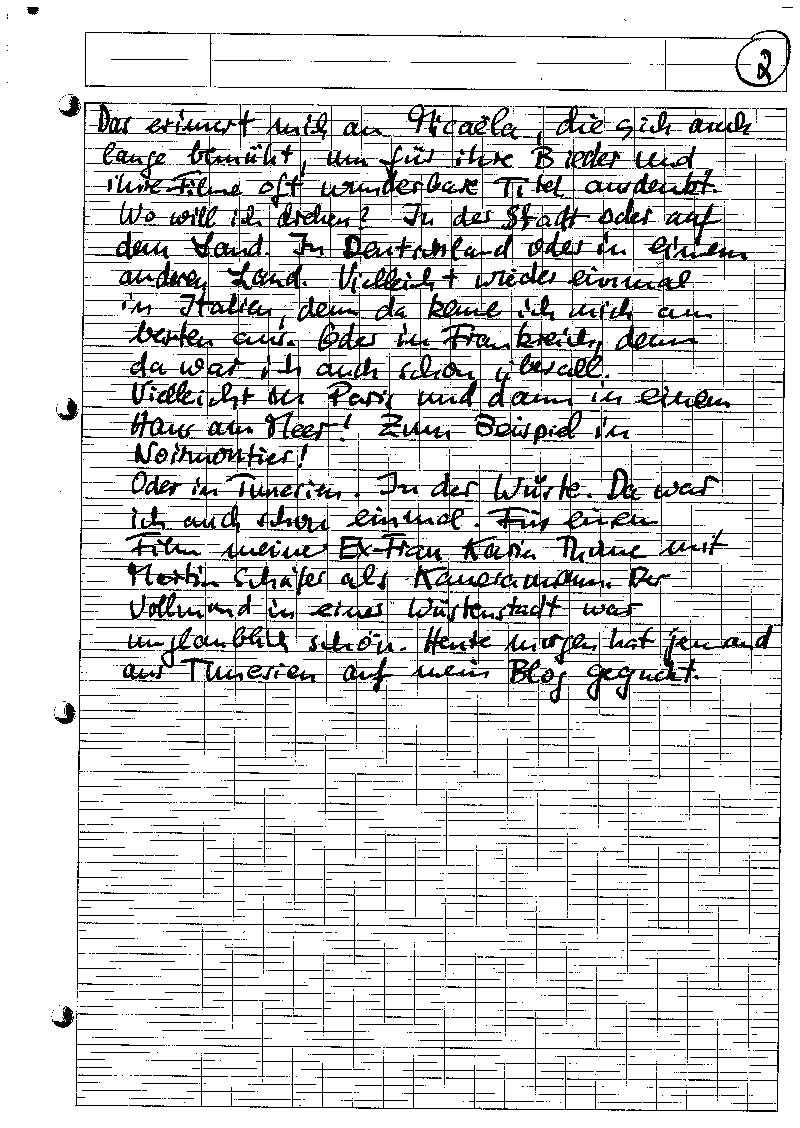 2
Das erinnert mich an Micaëla, die sich auch
lange bemüht, um für ihre Bieder und
ihre Filme oft wunderbare Titel ausdenkt.
Wo will ich drehen? In der Stadt oder auf
dem Land. In Deutschland oder in einem
anderen Land. Vielleicht wieder einmal
in Italien, denn da kenne ich mich am
besten aus. Oder in Frankreich, denn
da war ich auch schon überall.
Vielleicht in Paris und dann in einem
Haus am Meer! Zum Beispiel in
Noirmoutier!
Oder in Tunesien. In der Wüste. Da war
ich auch schon einmal. Für einen
Film meiner Ex-Frau Karin Thome mit
Martin Schäfer als Kameramann. Der
Vollmond in einer Wüstenstadt war
unglaublich schön. Heute morgen hat jemand
aus Tunesien auf mein Blog geguckt.